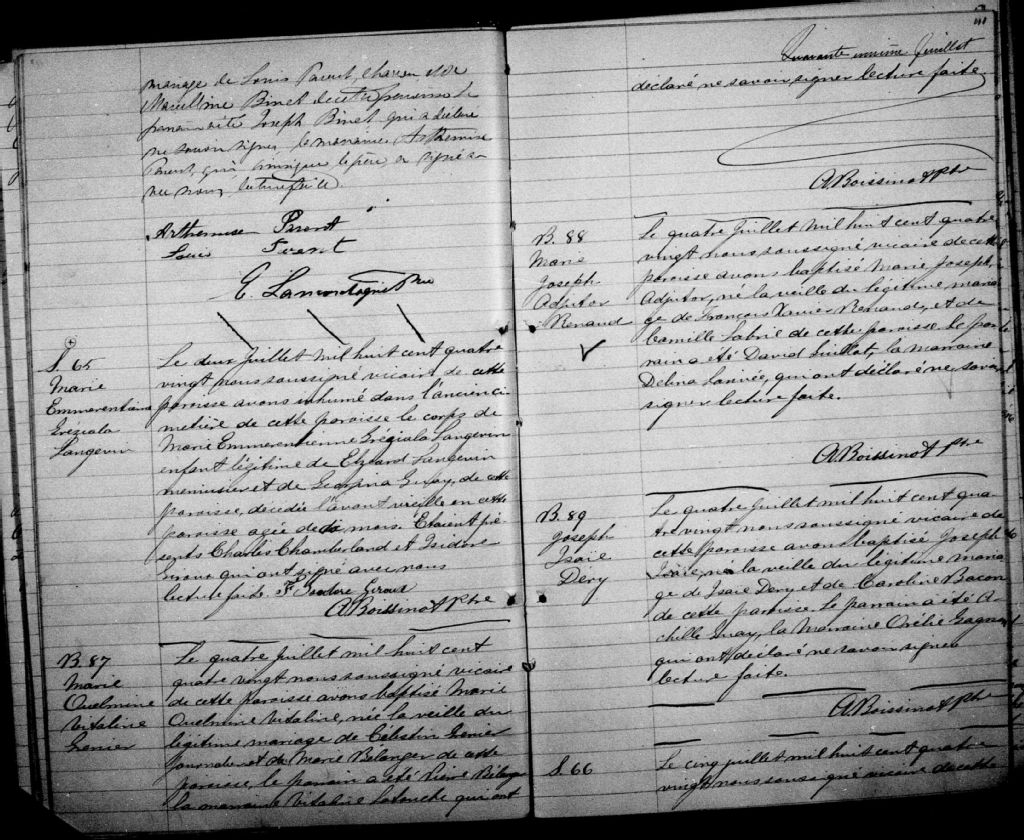 mariage de Louis Parent, charron et de
Marcelline Binet de cette paroisse le
parrain a été Joseph Binet qui a déclaré
ne savoir signer la marraine Arthemise
Parent, qui ainsi que le père a signé a-
vec nous lecture faite.
Arthemise Parent
Louis Parent
E. Lamontagne Ptre
S. 65
Marie
Emmerentienne
Greziala
Langevin
Le deux Juillet mil huit cent quatre
vingt nous soussigné vicaire de cette
paroisse avons inhumé dans l'ancien ci-
metière de cette paroisse le corps de
Marie Emmerentienne Greziala Langevin
enfant légitime de Elzéard Langevin
menuisier et de Georgina Guay, de cette
paroisse, décédée l'avant veille en cette
paroisse agée de mois. Etaient pré-
sents Charles Chamberland et Isidore
Giroux qui ont signé avec nous
lecture faite. F. Isidore Giroux
A. Boissinot Ptre
B. 87
Marie
Ouelmine
Vitaline
Genier
Le quatre Juillet mil huit cent
quatre vingt nous soussigné vicaire
de cette paroisse avons baptisé Marie
Ouelmine Vitaline, née la veille du
légitime mariage de Célestin Genier
Journalier et de Marie Bélanger de cette
paroisse, le parrain a été Pierre Bélanger
la marraine Vitaline Latouche qui ont
Quarante unième feuillet
déclaré ne savoir signer lecture faite.
A. Boissinot Ptre
B. 88
Marie
Joseph
Adjutor
Renaud
Le quatre Juillet mil huit cent quatre
vingt nous soussigné vicaire de cette
paroisse avons baptisé Marie Joseph,
Adjutor, né la veille du légitime maria-
ge de François Xavier Renaud, et de
Camille Labrie de cette paroisse. Le par-
rain a été David Guillot, la marraine
Delina Larivée, qui ont déclaré ne savoir
signer lecture faite.
A. Boissinot Ptre
B. 89
Joseph
Isaie
Déry
Le quatre Juillet mil huit cent qua-
tre vingt nous soussigné vicaire de
cette paroisse avons baptisé Joseph
Isaie, né la veille du légitime maria-
ge de Isaie Dery et de Caroline Bacon
de cette paroisse. Le parrain a été A-
chille Guay, la Marraine Orélie Gagné
qui ont déclaré ne savoir signer
lecture faite.
A. Boissinot Ptre
S. 66
Le cinq Juillet mil huit cent quatre
vingt nous soussigné vicaire de cette